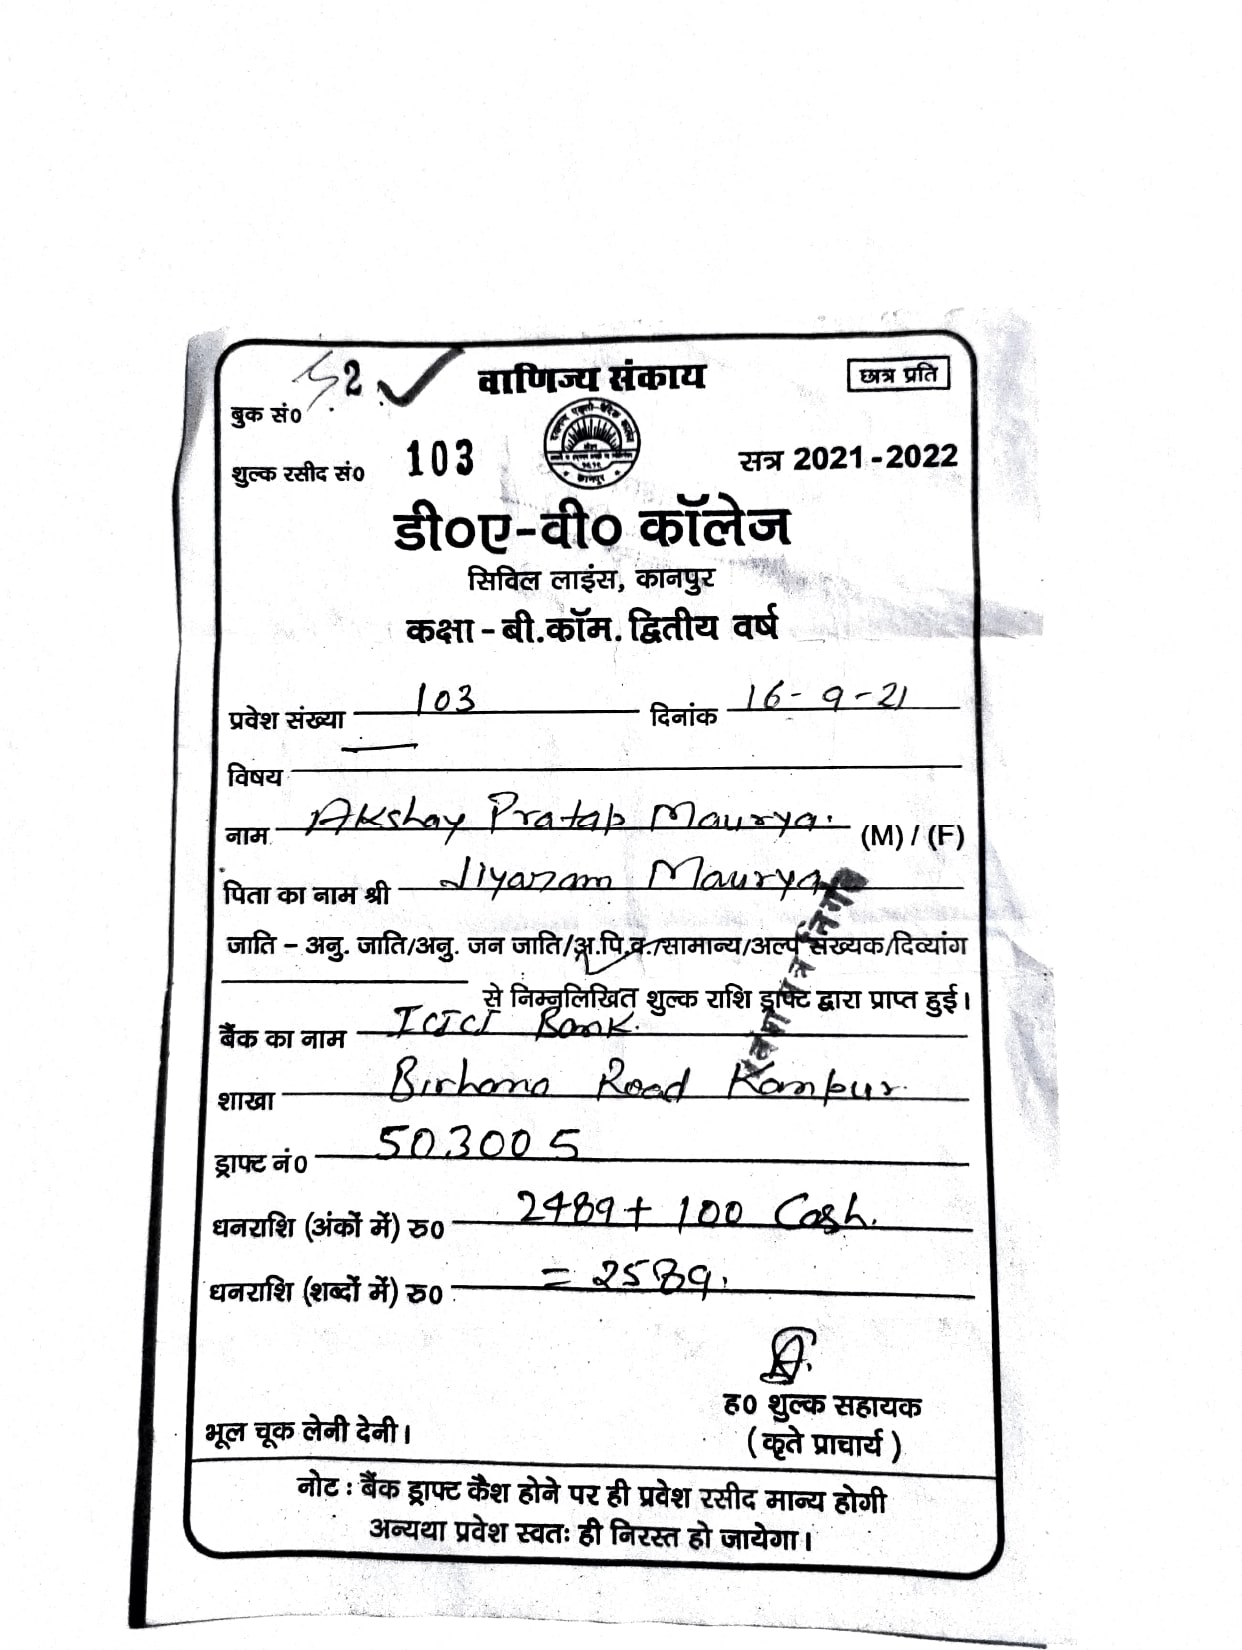 वाणिज्य संकाय
छात्र प्रति
बुक सं०
52
शुल्क रसीद सं० 103
सत्र 2021-2022
कानपुर
डी०ए-वी० कॉलेज
सिविल लाइंस, कानपुर
कक्षा - बी.कॉम. द्वितीय वर्ष
प्रवेश संख्या 103 दिनांक 16-9-21
विषय
नाम Akshay Pratap Maurya. (M) / (F)
पिता का नाम श्री Jiyaram Maurya
जाति - अनु. जाति/अनु. जन जाति/अ.पि.व./सामान्य/अल्प संख्यक/दिव्यांग
से निम्नलिखित शुल्क राशि ड्राफ्ट द्वारा प्राप्त हुई।
बैंक का नाम ICICI Bank.
शाखा Birhana Road Kanpur.
ड्राफ्ट नं० 503005
धनराशि (अंकों में) रु० 2489 + 100 Cash.
धनराशि (शब्दों में) रु० = 2589.
ह० शुल्क सहायक
भूल चूक लेनी देनी।
(कृते प्राचार्य)
नोट : बैंक ड्राफ्ट कैश होने पर ही प्रवेश रसीद मान्य होगी
अन्यथा प्रवेश स्वतः ही निरस्त हो जायेगा।